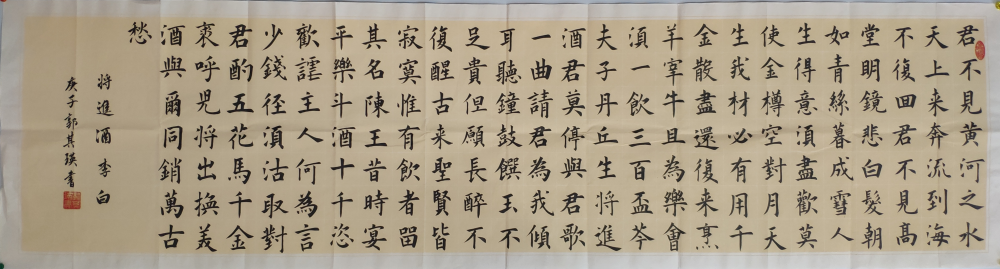 君不見黄河之水
天上来奔流到海
不復回君不見高
堂明鏡悲白髮朝
如青絲暮成雪人
生得意須盡歡莫
使金樽空對月天
生我材必有用千
金散盡還復来烹
羊宰牛且為樂會
須一飲三百盃岑
夫子丹丘生将進
酒君莫停與君歌
一曲請君為我傾
耳聽鐘鼓饌玉不
足貴但願長醉不
復醒古来聖賢皆
寂寞惟有飲者留
其名陳王昔時宴
平樂斗酒十千恣
歡謔主人何為言
少錢径須沽取對
君酌五花馬千金
裘呼兒将出換美
酒與爾同銷萬古
愁
将進酒李白
庚子郭其瑛書